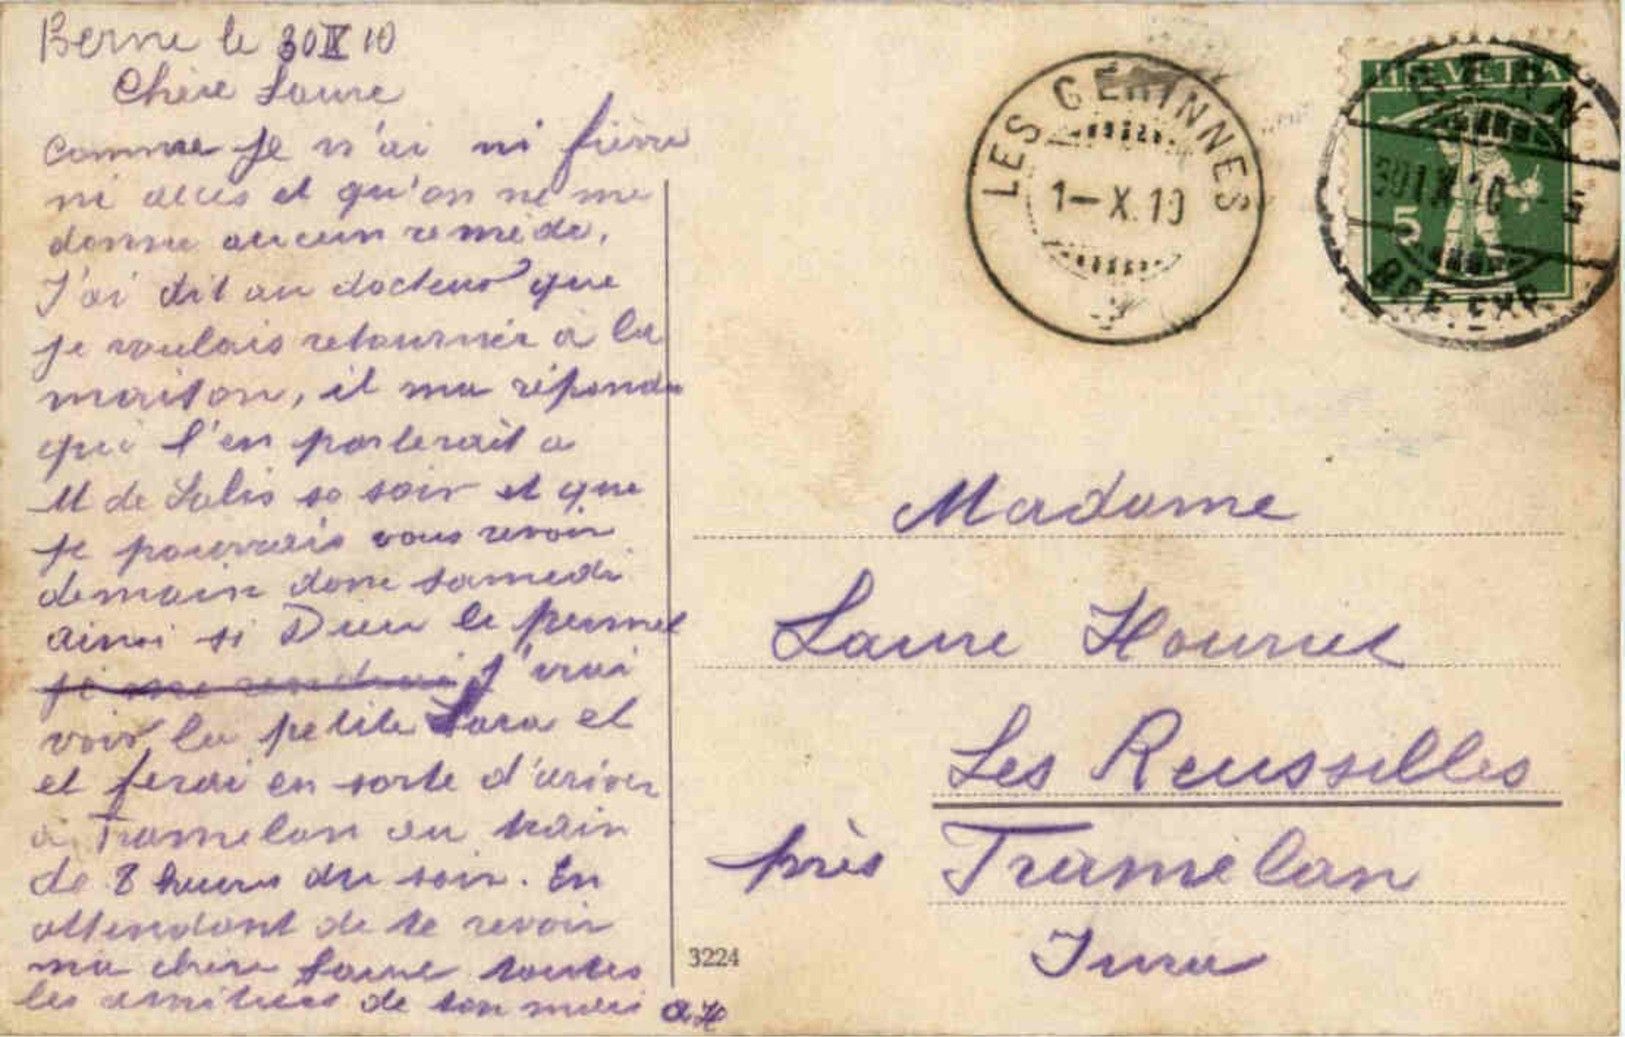 Berne le 30 IX 10
Chère Laure
Comme je n'ai ni fièvre
ni accès et qu'on ne me
donne aucun remède,
J'ai dit au docteur que
je voulais retourner à la
maison, il ma répondu
qui l'en parlerait a
M de Salis so soir et que
je pourrais vous revoir
demain donc samedi
ainsi si Dieu le permet
je me rendrai j'irai
voir la petite Sara et
et ferai en sorte d'ariver
à Tramelan au train
de 8 heures du soir. En
attendant de te revoir
ma chère Laure toutes
les amitiés de ton mari AH
3224
LES GÉRINNES
1-X.10
HELVETIA
5
BERN
30 IX 10
BRF. EXP.
Madame
Laure Houriet
Les Reussilles
près Tramelan
Jura